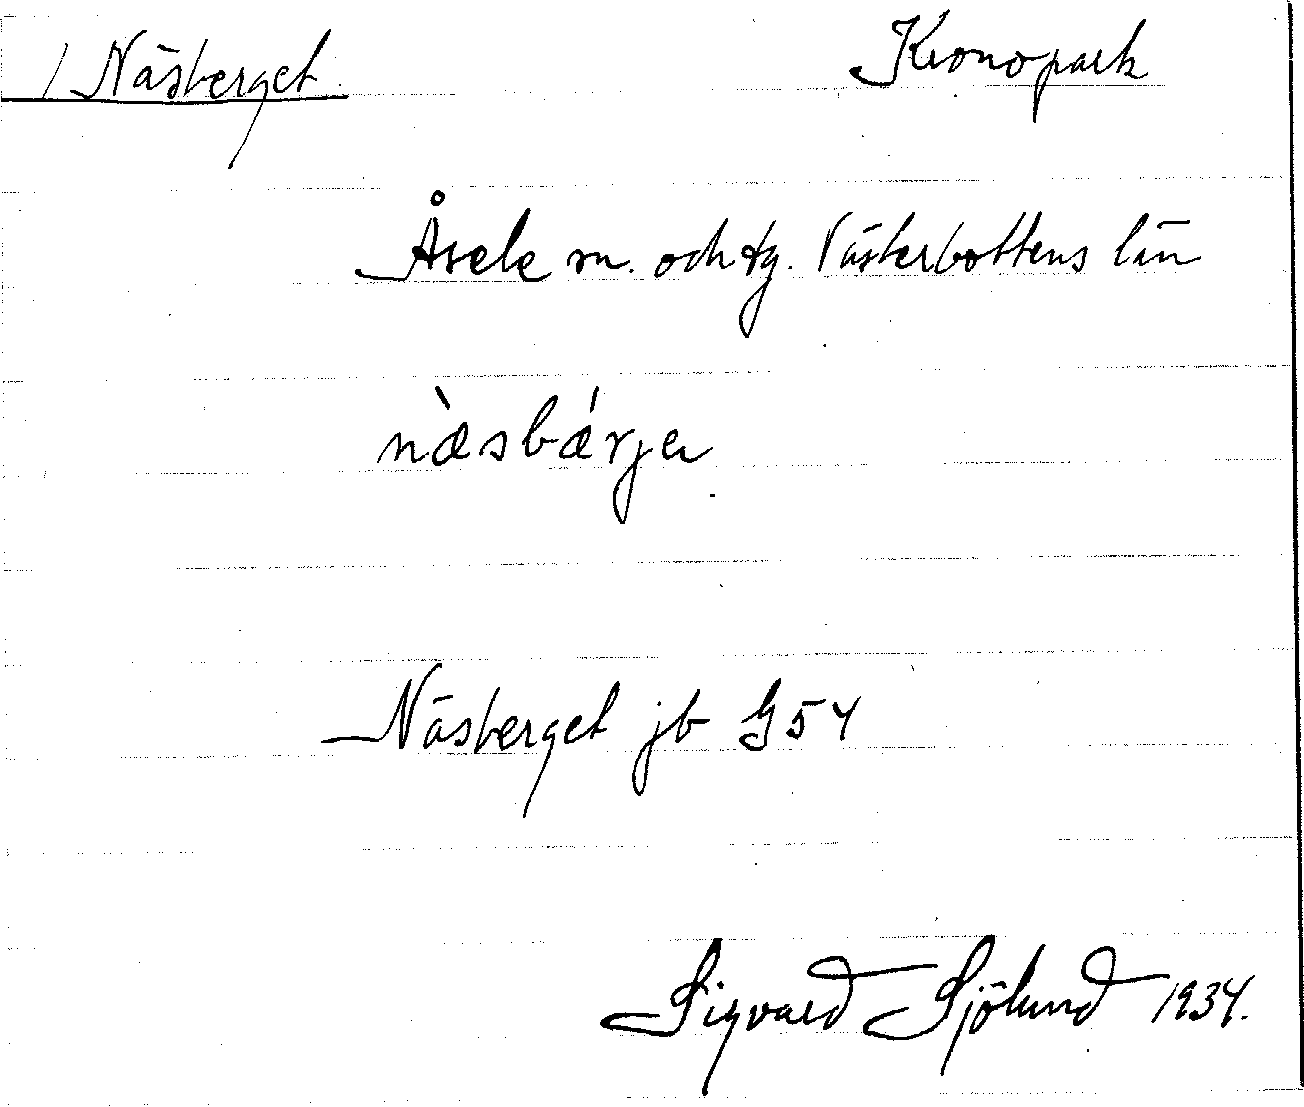 / Näsberget. Kronopark
Åsele sn. och tg. Västerbottens län
næ̀sbǽrjer
Näsberget jb G 54
Sigvard Sjölund 1934.